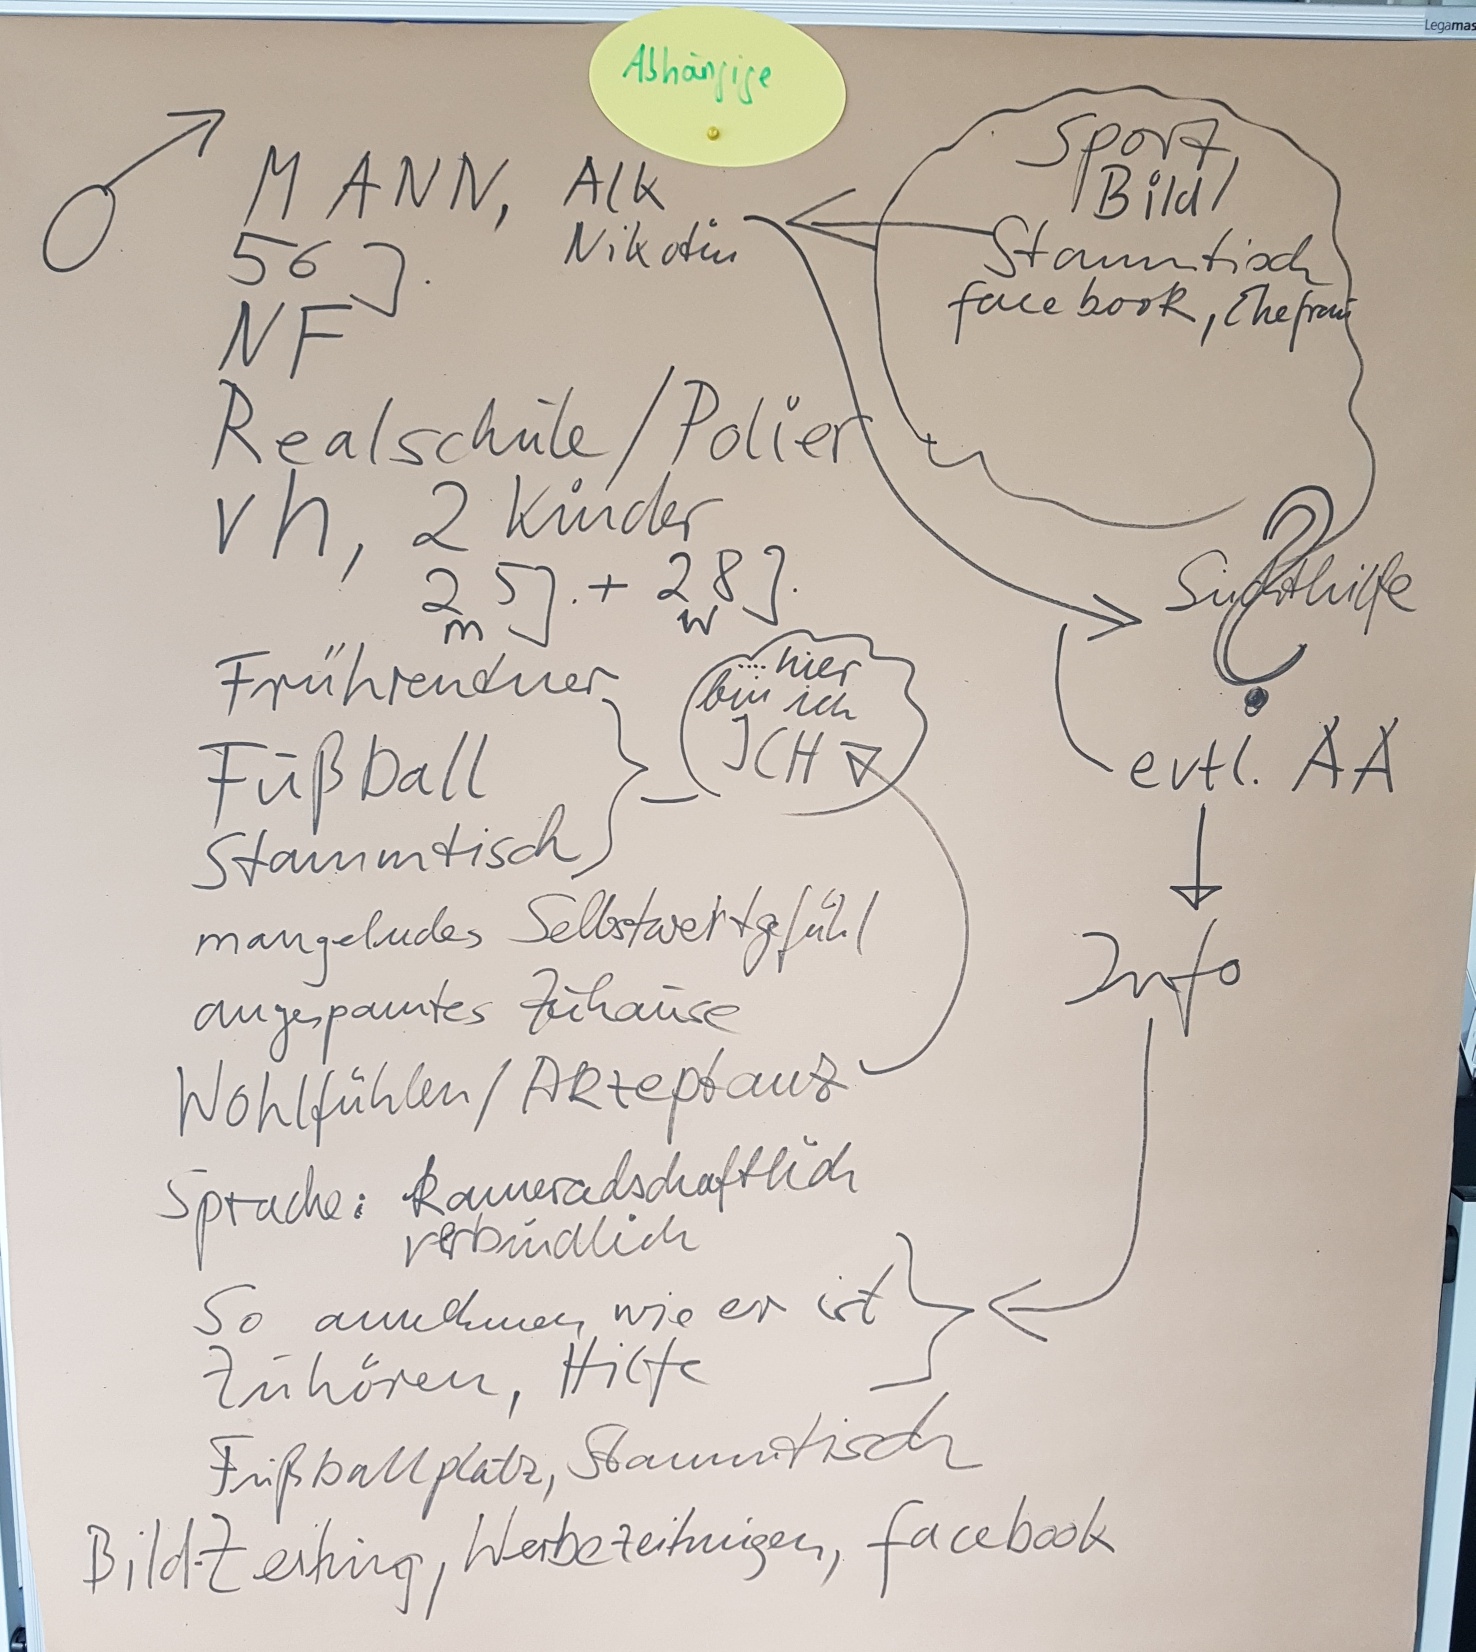 Legamas
Abhängige
MANN, Alk
56 J. Nikotin
NF
Realschule/Polier
vh, 2 Kinder
25J. + 28J.
m w
Frührentner
Fußball
Stammtisch
... hier
bin ich
ICH
mangelndes Selbstwertgefühl
angespanntes Zuhause
Wohlfühlen/Akzeptanz
Sprache: kameradschaftlich
verbindlich
So annehmen wie er ist
Zuhören, Hilfe
Fußballplatz, Stammtisch
Bild-Zeitung, Werbezeitungen, facebook
Sport,
Bild,
Stammtisch
facebook, Ehefrau
Suchthilfe
?
evtl. AA
Info